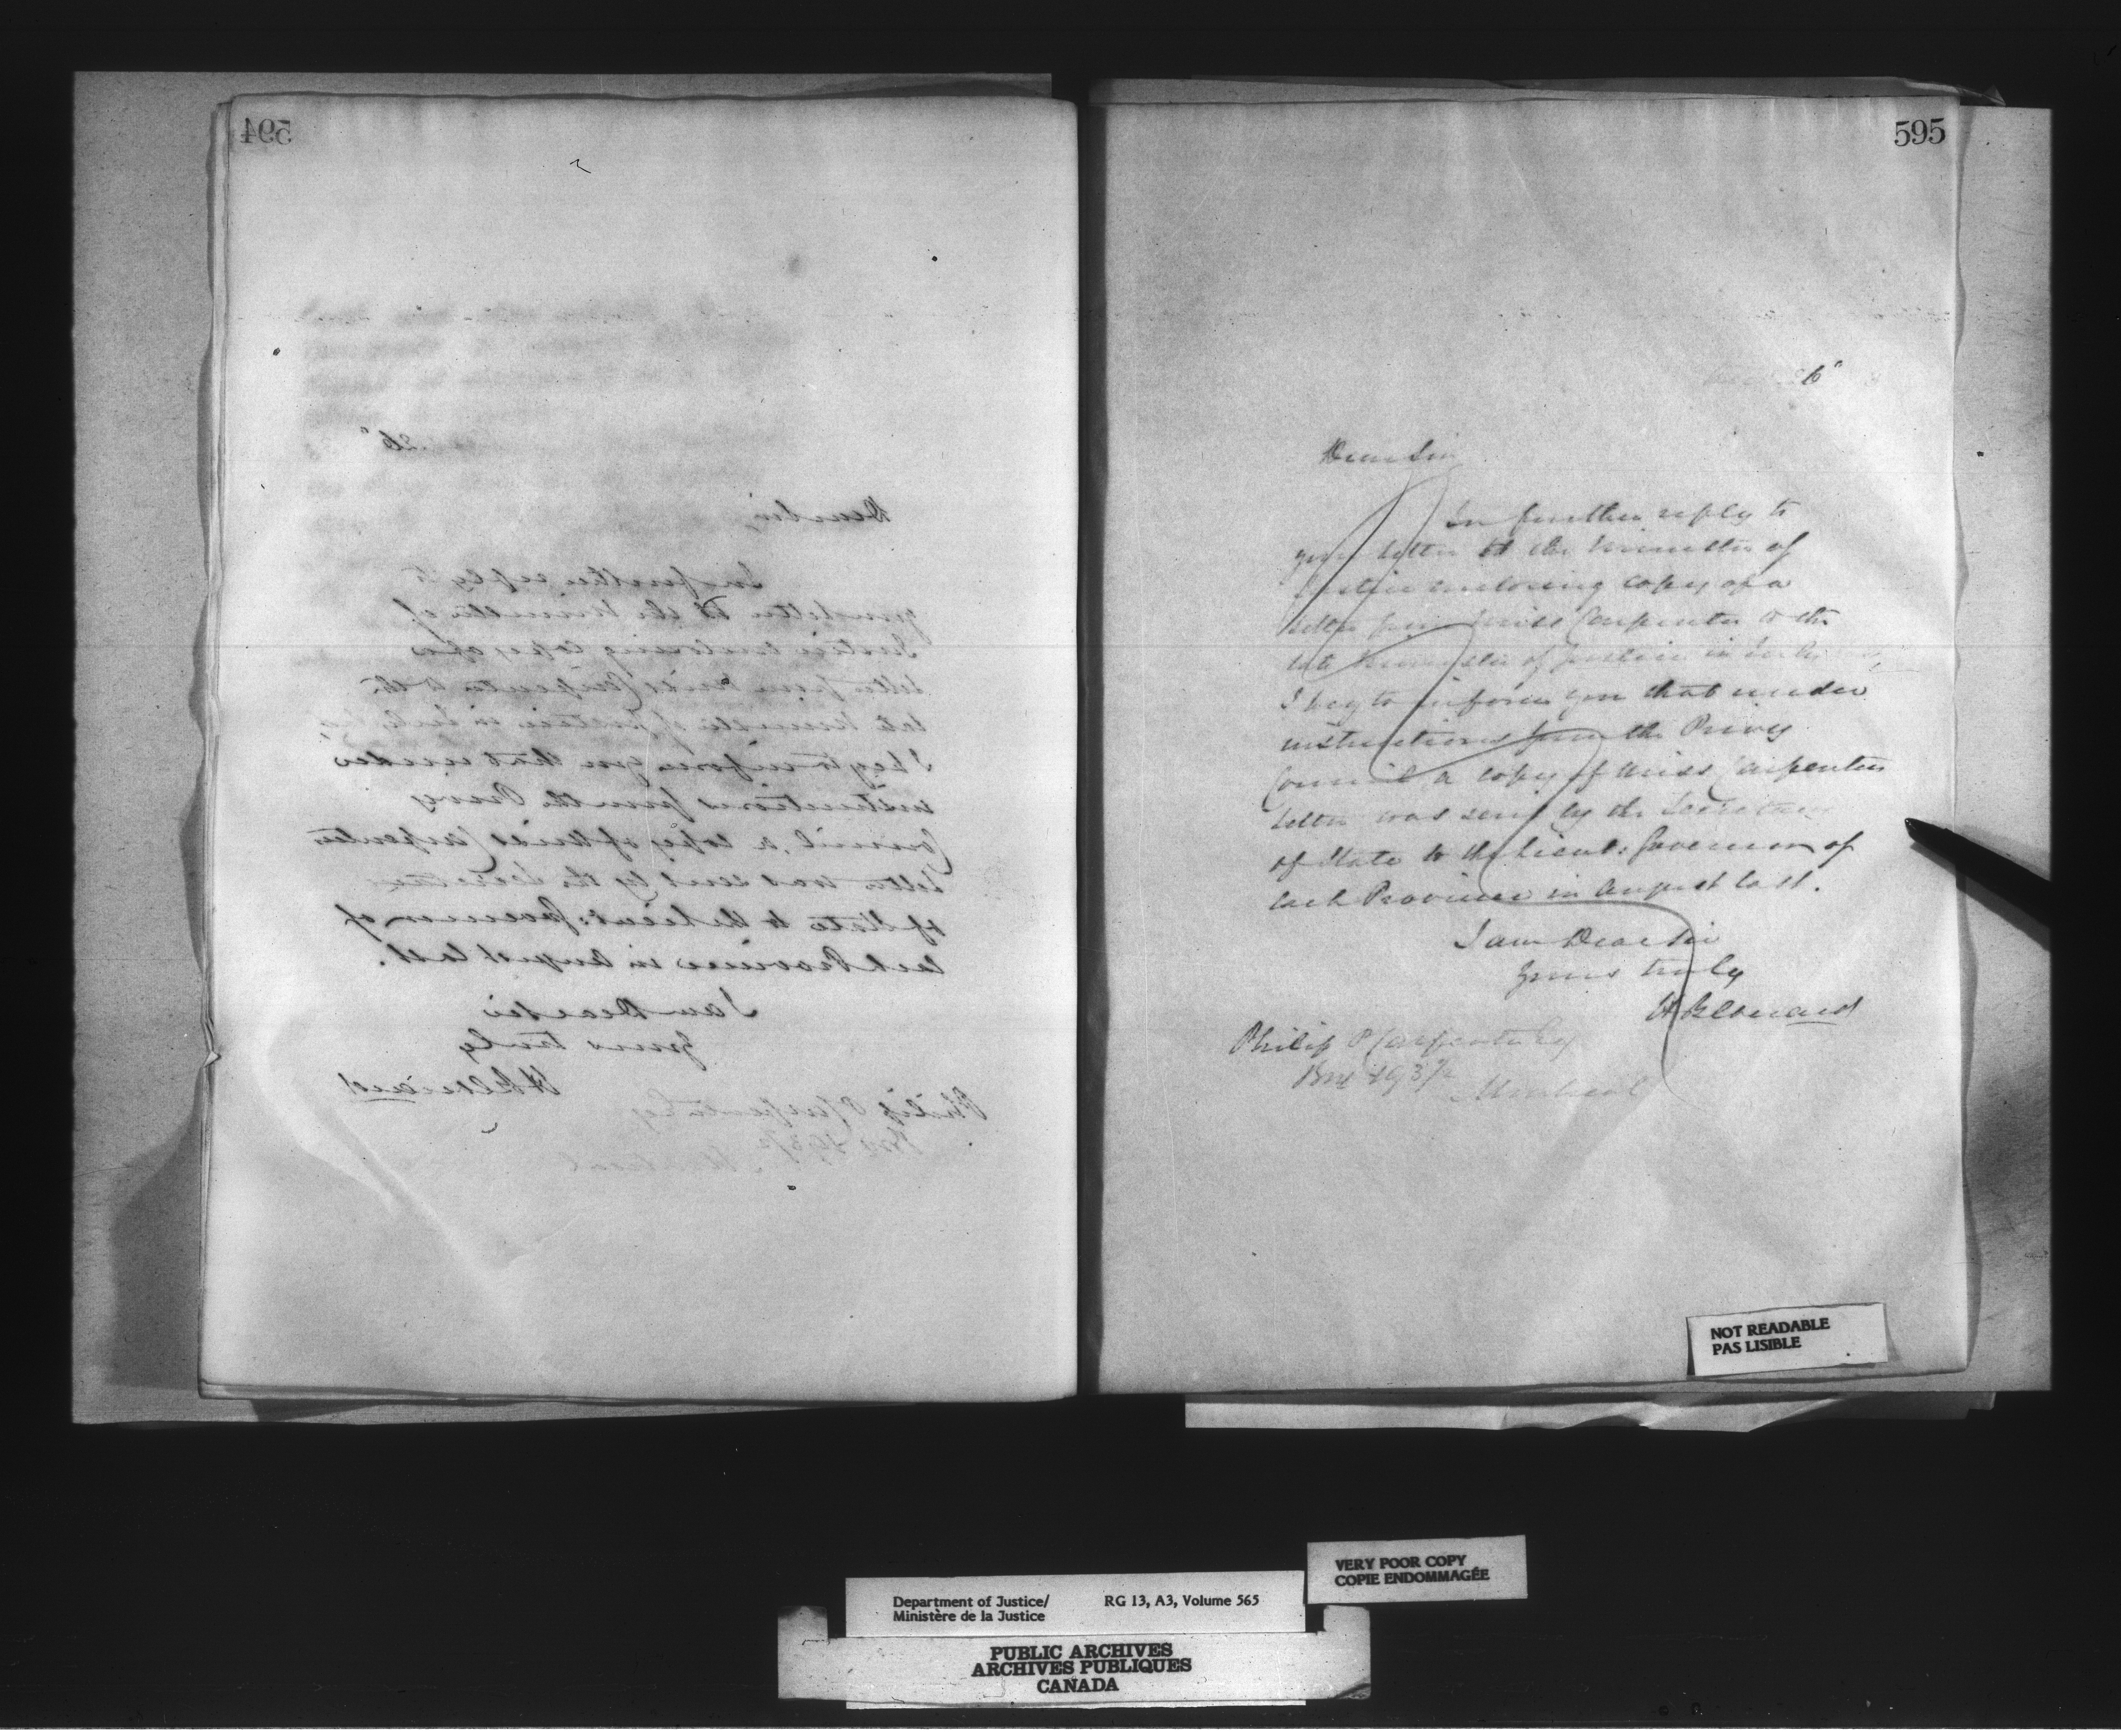 594
595
26"
Dear Sir
In further reply to
your letter to the Minister of
Justice enclosing copy of a
letter from Miss Carpenter to the
late Minister of Justice in July
I beg to inform you that under
instructions from the Privy
Council a copy of Miss Carpenters
letter was sent by the Secretary
of State to the Lieut: Governor of
each Province in August last.
I am Dear Sir
Yours truly
H Bernard
Philip P Carpenter Esq
Box
Montreal
NOT READABLE
PAS LISIBLE
VERY POOR COPY
COPIE ENDOMMAGÉE
Department of Justice/ RG 13, A3, Volume 565
Ministère de la Justice
PUBLIC ARCHIVES
ARCHIVES PUBLIQUES
CANADA